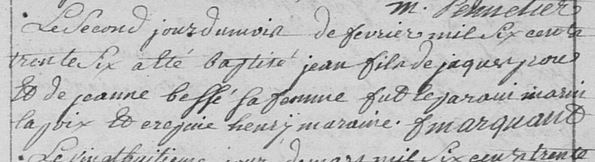 m. Pelletier
Le Second jour du mois de febvrier mil Six cents
trente Six a esté baptisé jean fils de jaques
Et de jeanne beffé sa femme fut le parain marin
la Et henry maraine. f marquant
Le vingthuitieme jour de mars mil Six cents trente